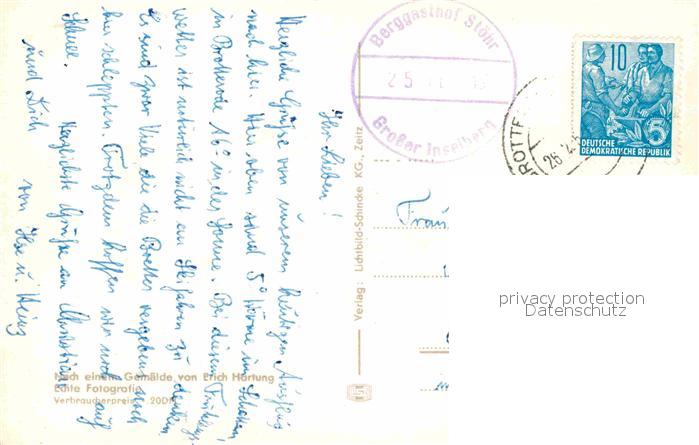 Ihr Lieben!
Herzliche Grüße von unserem heutigen Ausflug
nach hier. Hier oben sind 5° Wärme im Schatten,
in Brotterode 16° in der Sonne. Bei diesem Frühlings
wetter ist natürlich nicht an Skifahren zu denken.
Es sind zwar Viele, die die Bretter vergebens noch
hier schleppten. Trotzdem hoffen wir noch auf
Schnee. Herzlichste Grüße an
und Dich
von Ilse u. Heinz
Nach einem Gemälde von Erich Hartung
Echte Fotografie
Verbraucherpreis
Verlag: Lichtbild-Schincke KG., Zeitz
Berggasthof Stöhr
Großer Inselberg
10
5
DEUTSCHE
DEMOKRATISCHE REPUBLIK
Frau
privacy protection
Datenschutz